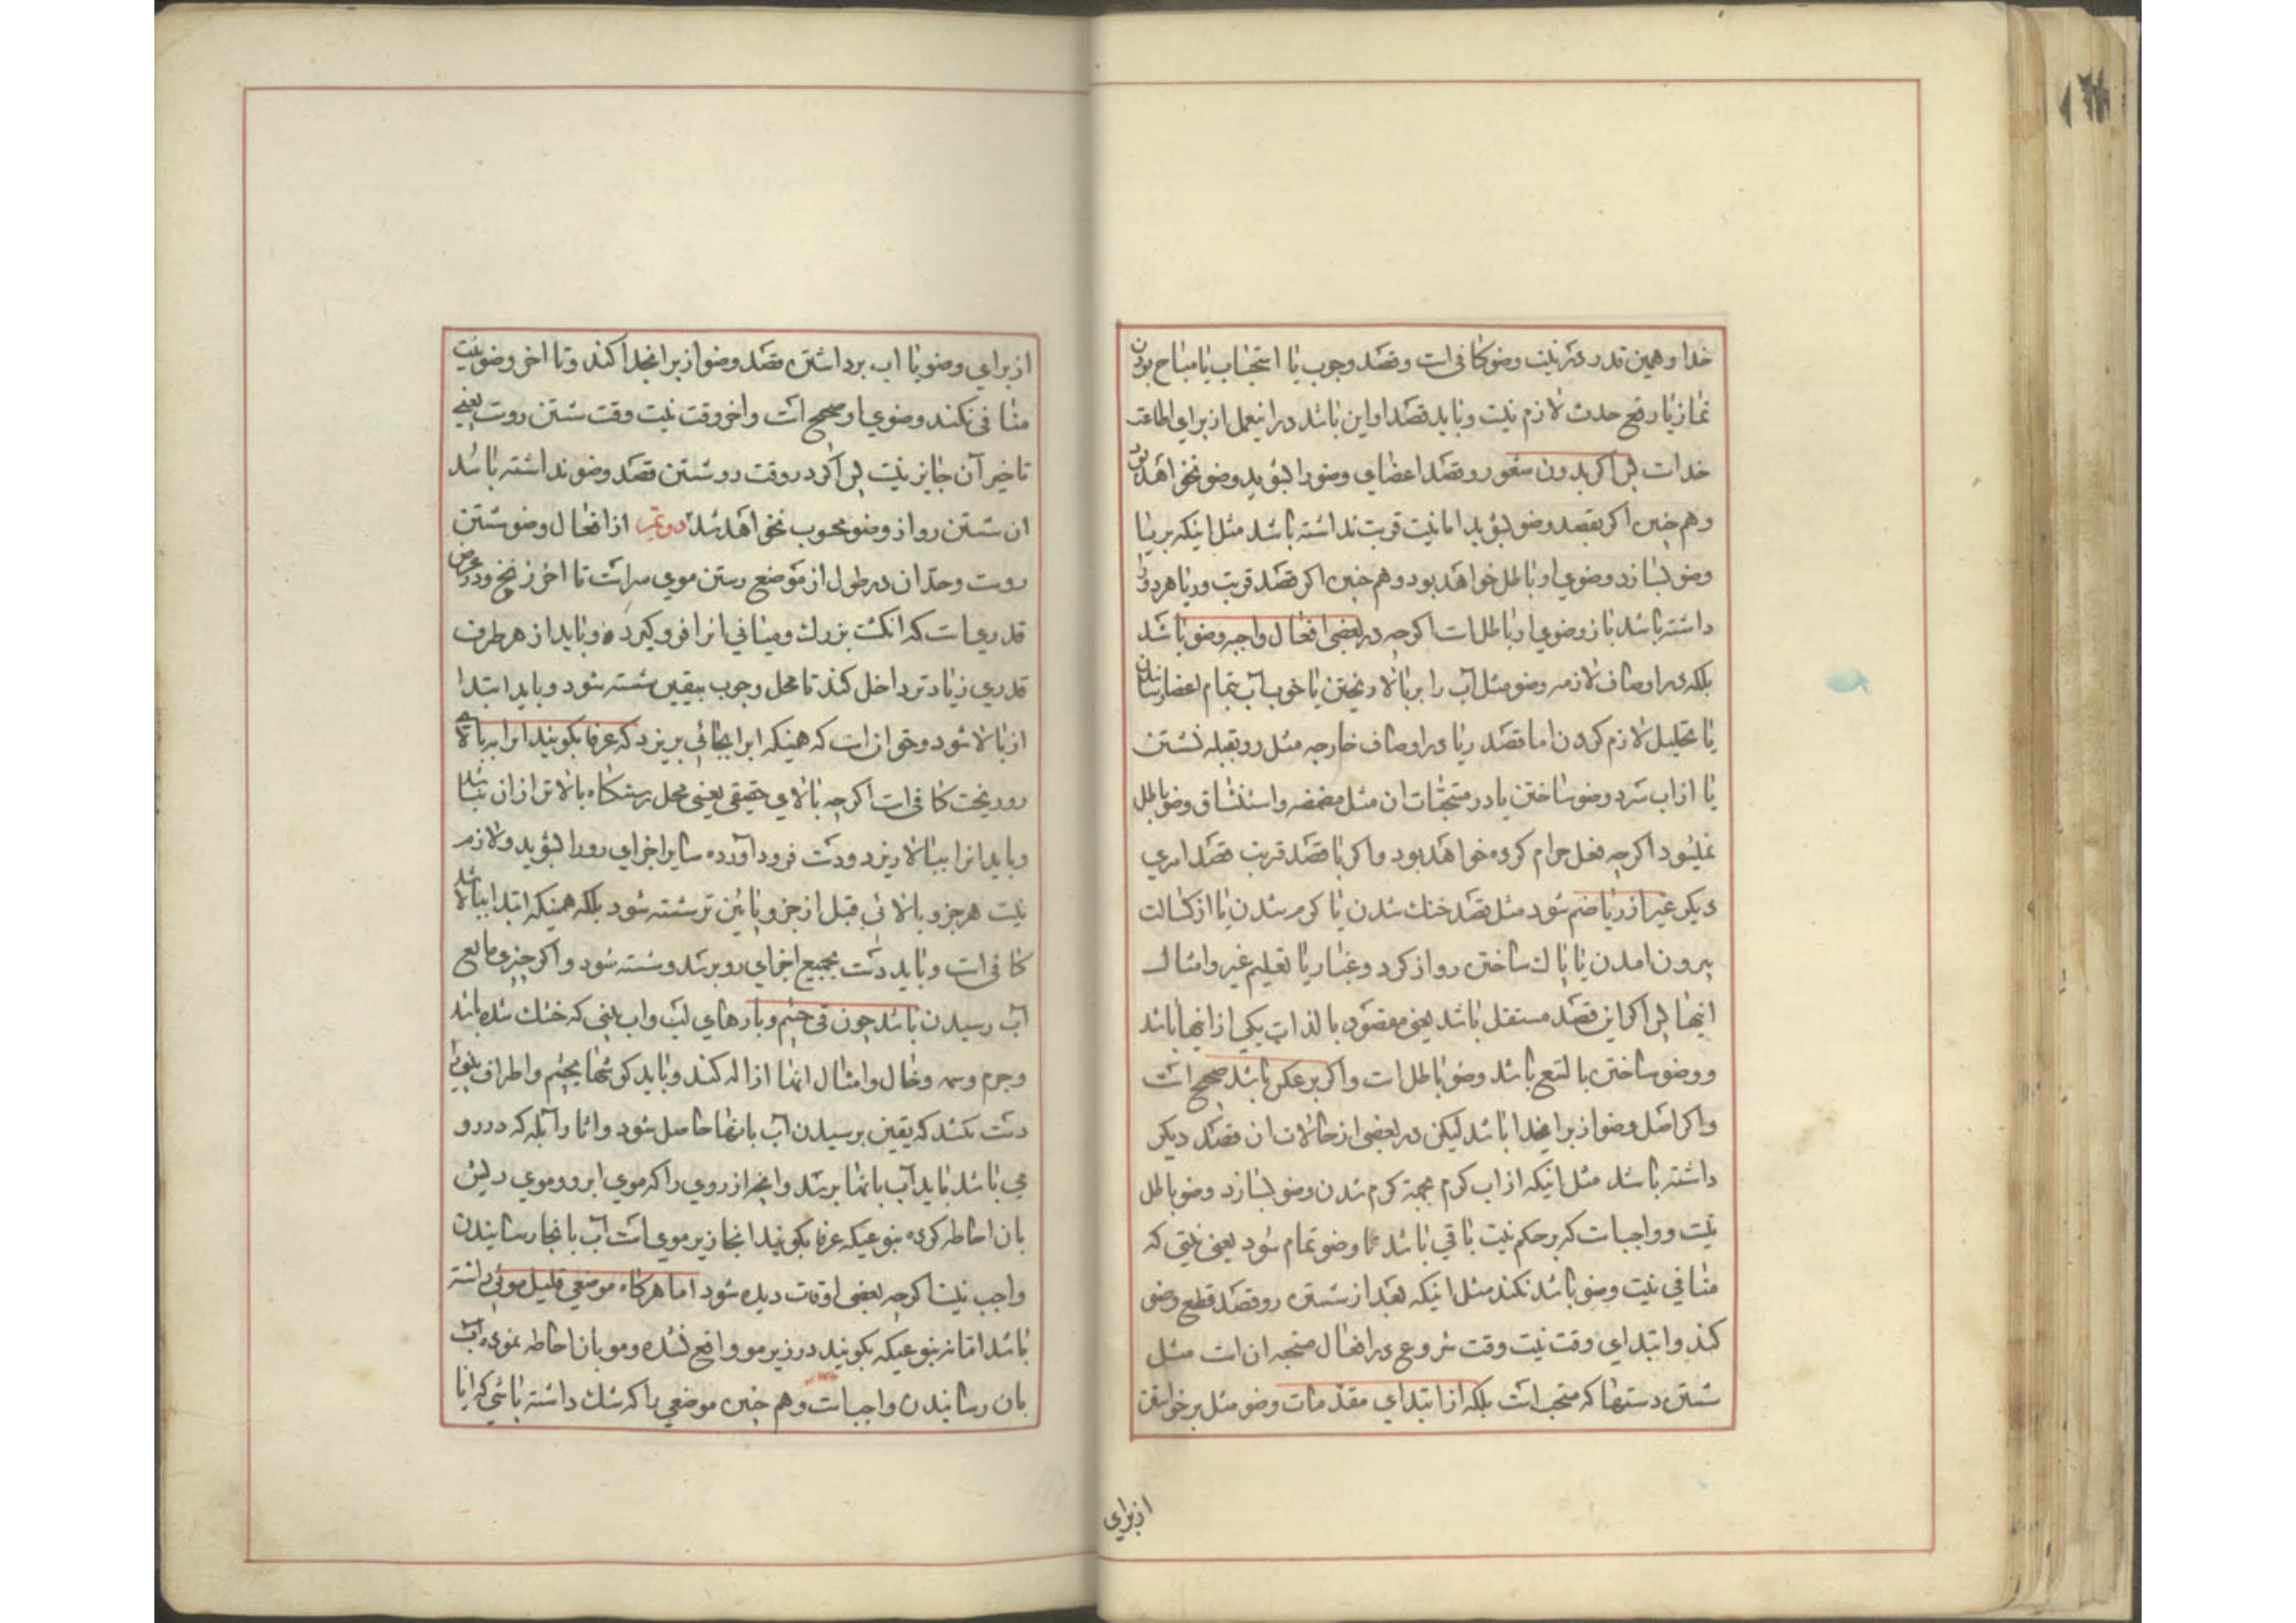 خدا و همین قدر در نیت وضو کافی است و قصد وجوب یا استحباب یا مباح بودن
نماز یا رفع حدث لازم نیست و باید قصد او این باشد در اینعمل از برای اطاعت
خداست پس اگر بدون شعور و قصد اعضای وضو را بشوید وضو نخواهد بود
و هم چنین اگر بقصد وضو بشوید اما نیت قربت نداشته باشد مثل اینکه بریا
وضو بسازد وضوی او باطل خواهد بود و هم چنین اگر قصد قربت و ریا هر دو را
داشته باشد باز وضوی او باطل است اگر چه در بعضی افعال واجبه وضو باشد
بلکه در اوصاف لازمه وضو مثل آب را بر بالا ریختن یا خوب آب بتمام اعضا رساندن
یا تحلیل لازم کردن اما قصد ریا در اوصاف خارجه مثل رو بقبله نشستن
یا از اب سرد وضو ساختن یا در مستحبات ان مثل مضمضه و استنشاق وضو باطل
نمیشود اگر چه فعل حرام کرده خواهد بود و اگر با قصد قربت قصد امری
دیگر غیر از ریا ضم شود مثل قصد خنك شدن یا گرم شدن یا از کسالت
بیرون امدن یا پاك ساختن رو از گرد و غبار یا تعلیم غیر و امثال
اینها پس اگر این قصد مستقل باشد یعنی مقصود بالذات یکی از اینها باشد
و وضو ساختن بالتبع باشد وضو باطل است و اگر بر عکس باشد صحیح است
و اگر اصل وضو از برای خدا باشد لیکن در بعضی از حالات ان قصد دیگر
داشته باشد مثل اینکه از اب گرم بجهة گرم شدن وضو بسازد وضو باطل
نیست و واجبست که بر حکم نیت باقی باشد تا وضو تمام شود یعنی نیتی که
منافی نیت وضو باشد نکند مثل اینکه بعد از شستن رو قصد قطع وضو
کند و ابتدای وقت نیت وقت شروع در افعال مستحبه ان است مثل
شستن دستها که مستحب است بلکه از ابتدای مقدمات وضو مثل برخواستن
از برای
از برای وضو یا اب برداشتن قصد وضو از برای خدا کند و تا اخر وضو نیت
منافی نکند وضوی او صحیح است و اخر وقت نیت وقت شستن روست یعنی
تاخیر آن جایز نیست پس اگر در وقت رو شستن قصد وضو نداشته باشد
ان شستن رو از وضو محسوب نخواهد شد دویم از افعال وضو شستن
روست و حد ان در طول از موضع رستن موی سر است تا اخر زنخ و در عرض
قدری است که انگشت بزرك و میانی انرا فرو گیرد و باید از هر طرف
قدری زیادتر داخل کند تا محل وجوب بیقین شسته شود و باید ابتدا
از بالا شود و متواز است که همینکه اب را بجائی بریزد که عرفا بگویند اب را به بالای
رو ریخت کافی است اگر چه بالای حقیقی یعنی محل رستنگاه بالاتر از ان باشد
و باید انرا ببالا ریزد و دست فرود آورده سایر اجزای رو را بشوید و لازم
نیست هر جزو بالائی قبل از جزو پائین تر شسته شود بلکه همینکه ابتدا ببالا شد
کافی است و باید دست بجمیع اجزای رو برسد و شسته شود و اگر چیزی مانع
آب رسیدن باشد چون قی چشم و پارهای لب و اب بینی که خشك شده باشد
و جرم وسمه و خال و امثال انها ازاله کند و باید گوشهای چشم و اطراف بینی را
دست بکشد که یقین برسیدن آب بانها حاصل شود و اثار آبله که در رو
می باشد باید آب بانها برسد و انچه از روی را که موی ابرو و موی ریش
بان احاطه کرده بنوعیکه عرفا بگویند انجا زیر موی است آب بانجا رسانیدن
واجب نیست اگر چه بعضی اوقات دیده شود اما هر گاه موضعی قلیل موئی داشته
باشد اما نه بنوعیکه بگویند در زیر مو واقع شده و مو بان احاطه نموده آب
بان رسانیدن واجب است و هم چنین موضعی را که شك داشته باشی که ایا